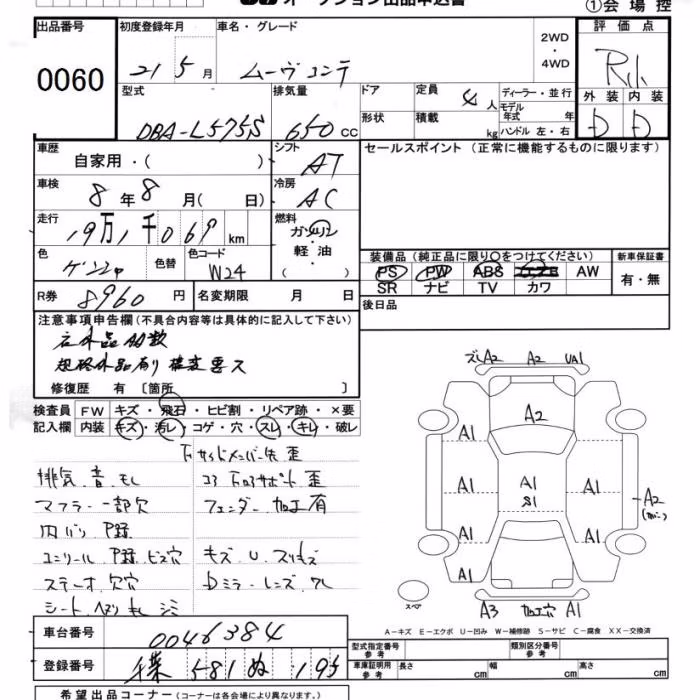 オークション出品申込書
①会場控
出品番号 初度登録年月 車名・グレード 2WD・4WD 評価点
0060 21 5月 ムーヴコンテ R小
型式 排気量 ドア 定員 4人 ディーラー・並行 外装 内装
モデル年式 年
DBA-L575S 650cc 形状 積載 kg ハンドル 左・右 D D
車歴 自家用・( ) シフト AT セールスポイント (正常に機能するものに限ります)
車検 8年8月( 日) 冷房 AC
走行 19万1千069km 燃料 ガソリン・軽油・( )
色 色替 色コード W24
装備品 (純正品に限り○をつけてください) 新車保証書
PS PW ABS AW 有・無
SR ナビ TV カワ
R券 8960円 名変期限 月 日
後日品
注意事項申告欄(不具合内容等は具体的に記入して下さい)
社外品多数
規格外品有り 検査要ス
修復歴 有〔箇所 〕
検査員 FW キズ・飛石・ヒビ割・リペア跡・×要
記入欄 内装 キズ・汚レ・コゲ・穴・スレ・キレ・破レ
下サイドメンバー先 歪
排気 音 モレ コア下ロアサポート 歪
マフラー 一部欠 フェンダー 加工有
内バリ P跡
ユーリール P跡 ビス穴 キズ U スリキズ
ステーオ 欠穴 Dミラーレンズ ワレ
シート ヘタリ キレ シミ
A2 A2 UA1
A2
A1
A1 A1 A1 A2
S1
A1 A1
A1
スペア A3 加工穴 A1
A-キズ E-エクボ U-凹み W-補修跡 S-サビ C-腐食 XX-交換済
車台番号 0046384
型式指定番号 参考 類別区分番号 参考
登録番号 千葉 581 ぬ 195
車庫証明用 参考 長さ cm 幅 cm 高さ cm
希望出品コーナー (コーナーは各会場により異なります。)